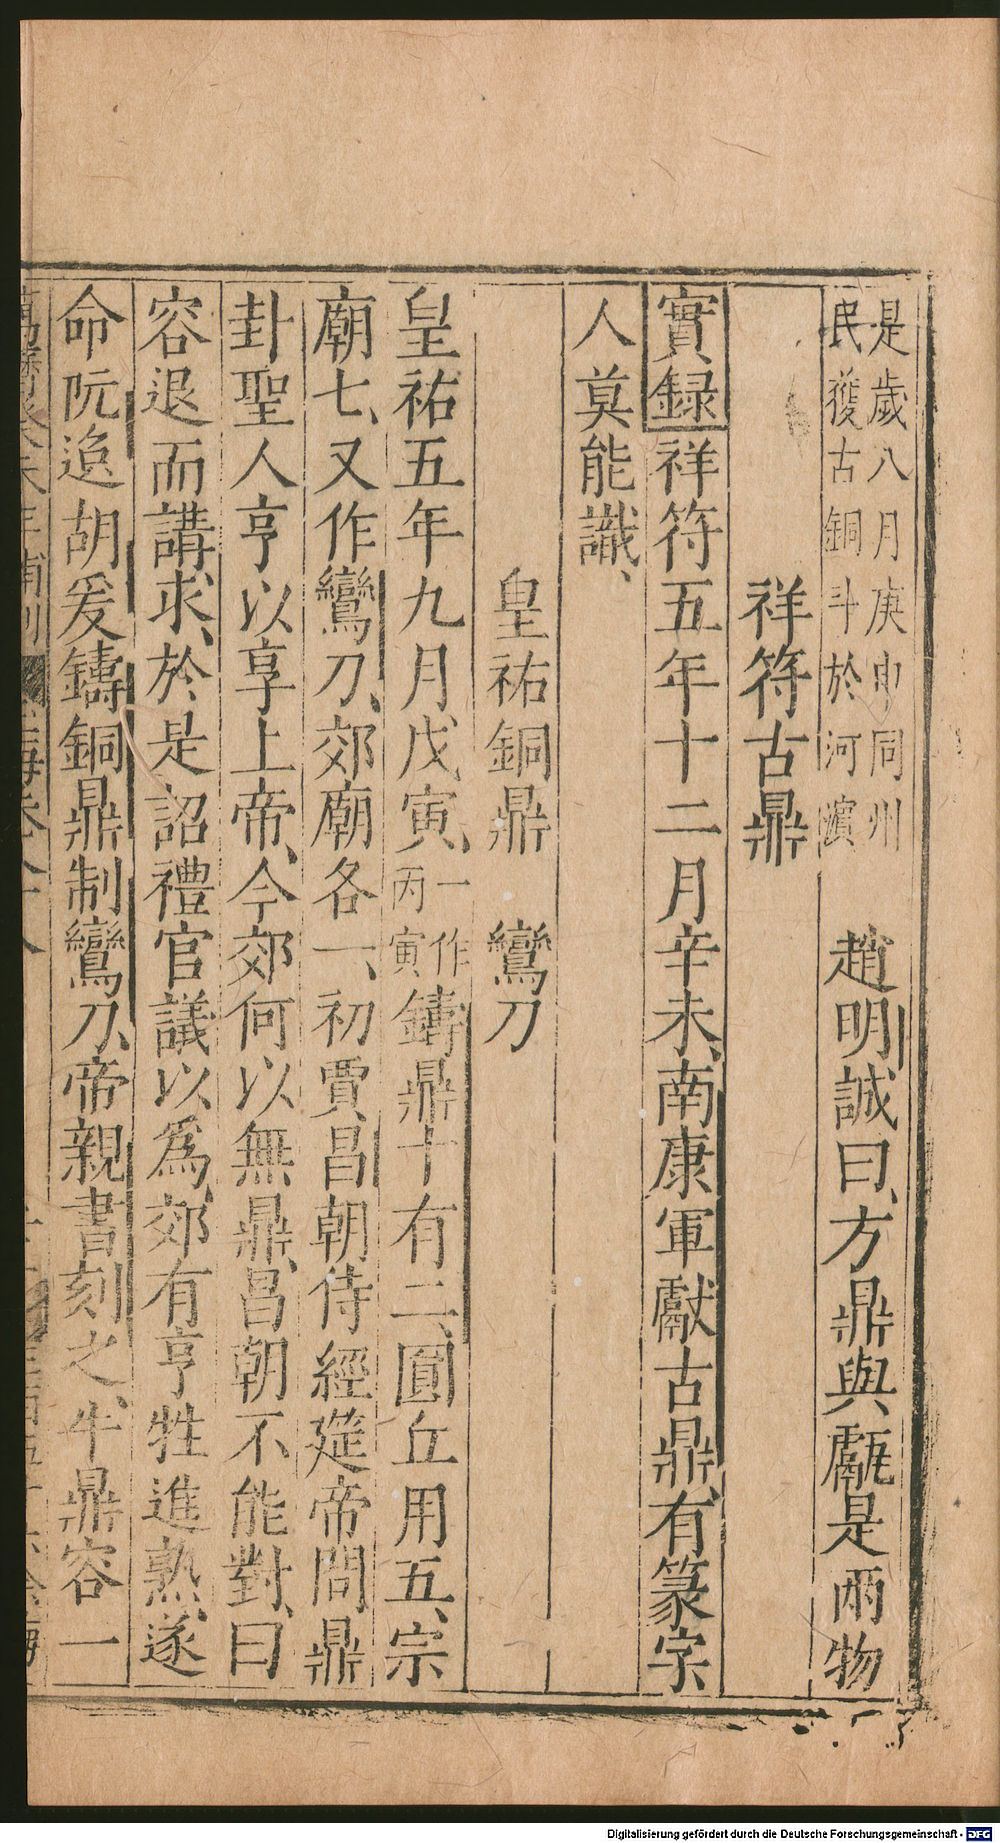 是歲八月庚申同州民獲古銅斗於河濱 趙明誠曰、方鼎與甗是兩物
祥符古鼎
實録祥符五年十二月辛未、南康軍獻古鼎、有篆字
人莫能識、
皇祐銅鼎 鸞刀
皇祐五年九月戊寅、一作丙寅鑄鼎十有二、圓丘用五、宗
廟七、又作鸞刀、郊廟各一、初賈昌朝侍經筵帝問、鼎
卦聖人亨以享上帝、今郊何以無鼎、昌朝不能對、曰
容退而講求、於是詔禮官議以為、郊有亨牲進熟、遂
命阮逸胡爰鑄銅鼎制鸞刀、帝親書刻之、牛鼎容一
Digitalisierung gefördert durch die Deutsche Forschungsgemeinschaft - DFG